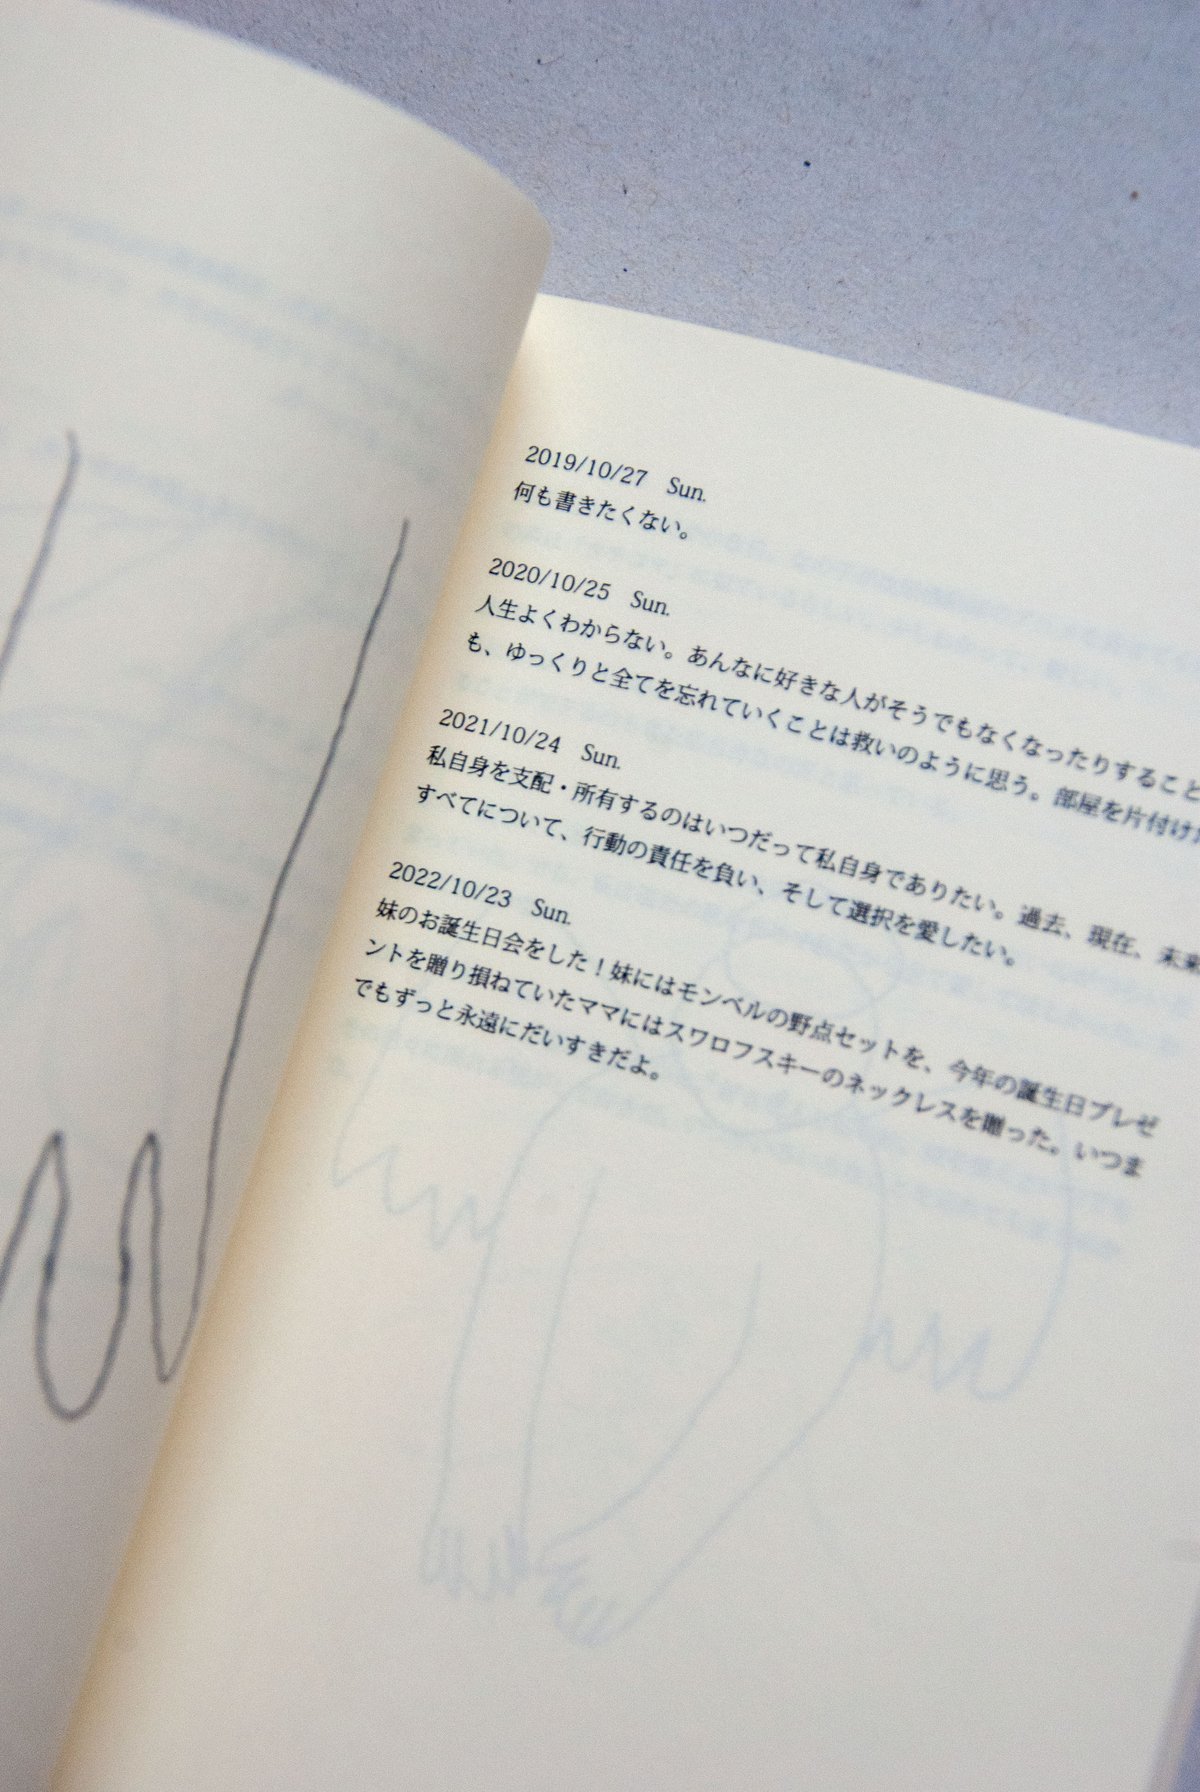 2019/10/27 Sun.
何も書きたくない。
2020/10/25 Sun.
人生よくわからない。あんなに好きな人がそうでもなくなったりすること
も、ゆっくりと全てを忘れていくことは救いのように思う。部屋を片付け
2021/10/24 Sun.
私自身を支配・所有するのはいつだって私自身でありたい。過去、現在、未来
すべてについて、行動の責任を負い、そして選択を愛したい。
2022/10/23 Sun.
妹のお誕生日会をした！妹にはモンベルの野点セットを、今年の誕生日プレゼ
ントを贈り損ねていたママにはスワロフスキーのネックレスを贈った。いつま
でもずっと永遠にだいすきだよ。